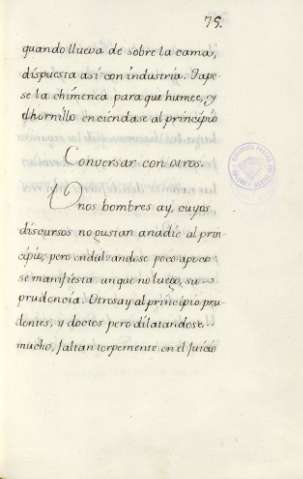 75.
quando llueva de sobre la cama,
dispuesta asi con industria. Tape
se la chimenea para que humee, y
el hornillo enciendase al principio
Conversar con otros.
Unos hombres ay, cuyos
discursos no gustan anadie al prin
cipio, pero endalzandose poco apoco
se manifiesta unque no luego, su
prudencia. Otros ay al principio pru
dentes, y doctos pero dilatandose
mucho, faltan torpemente en el Juicio